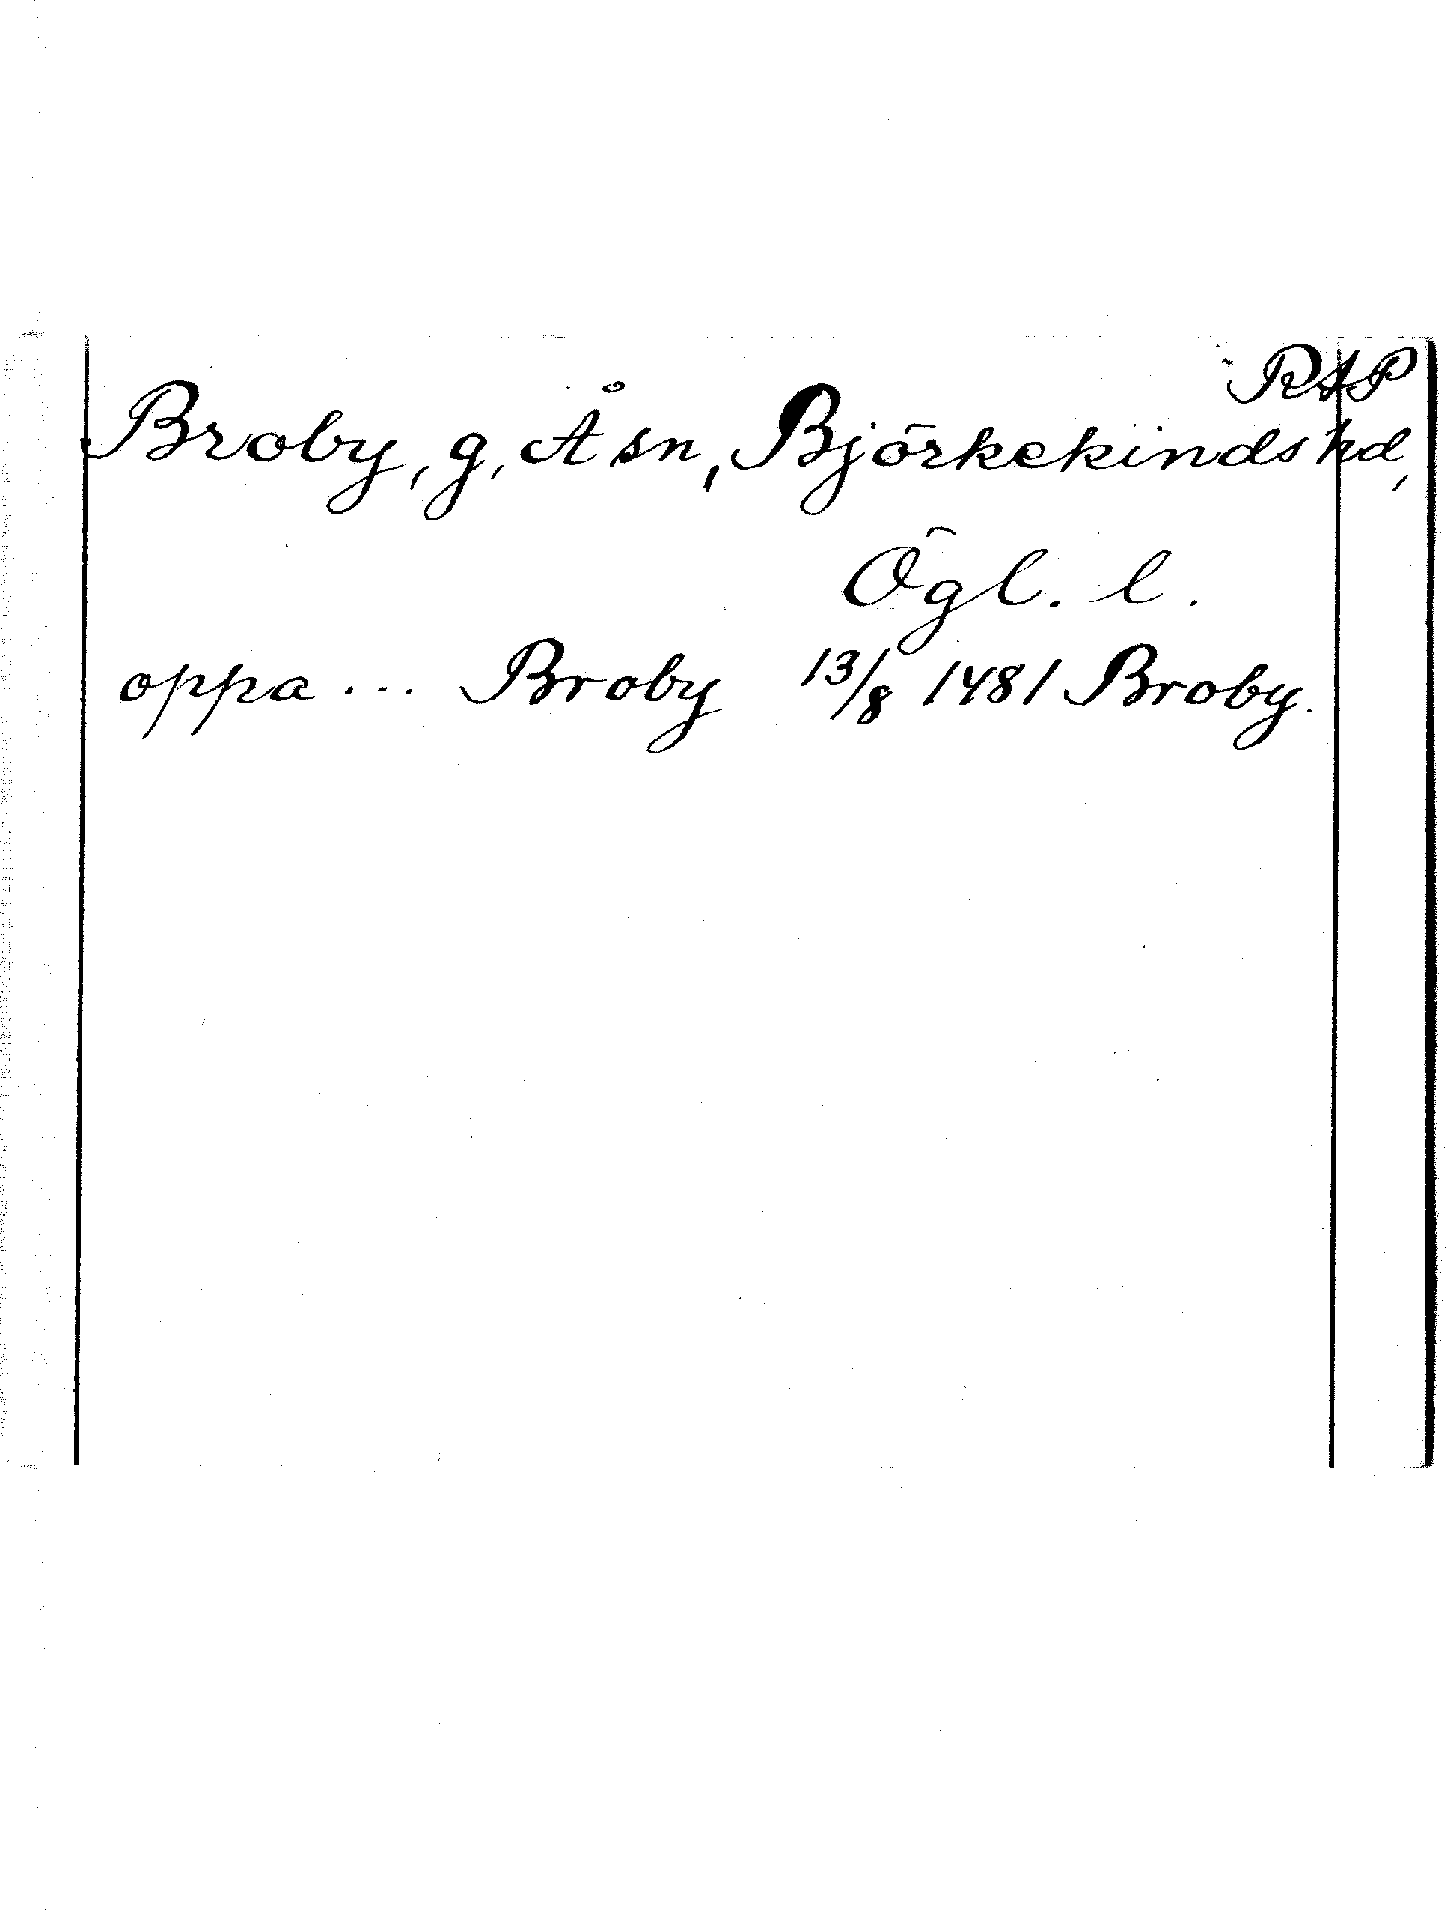 RAP
Broby, g, Å sn, Björkekinds hd,
Ögl. l.
oppa ... Broby 13/8 1481 Broby.